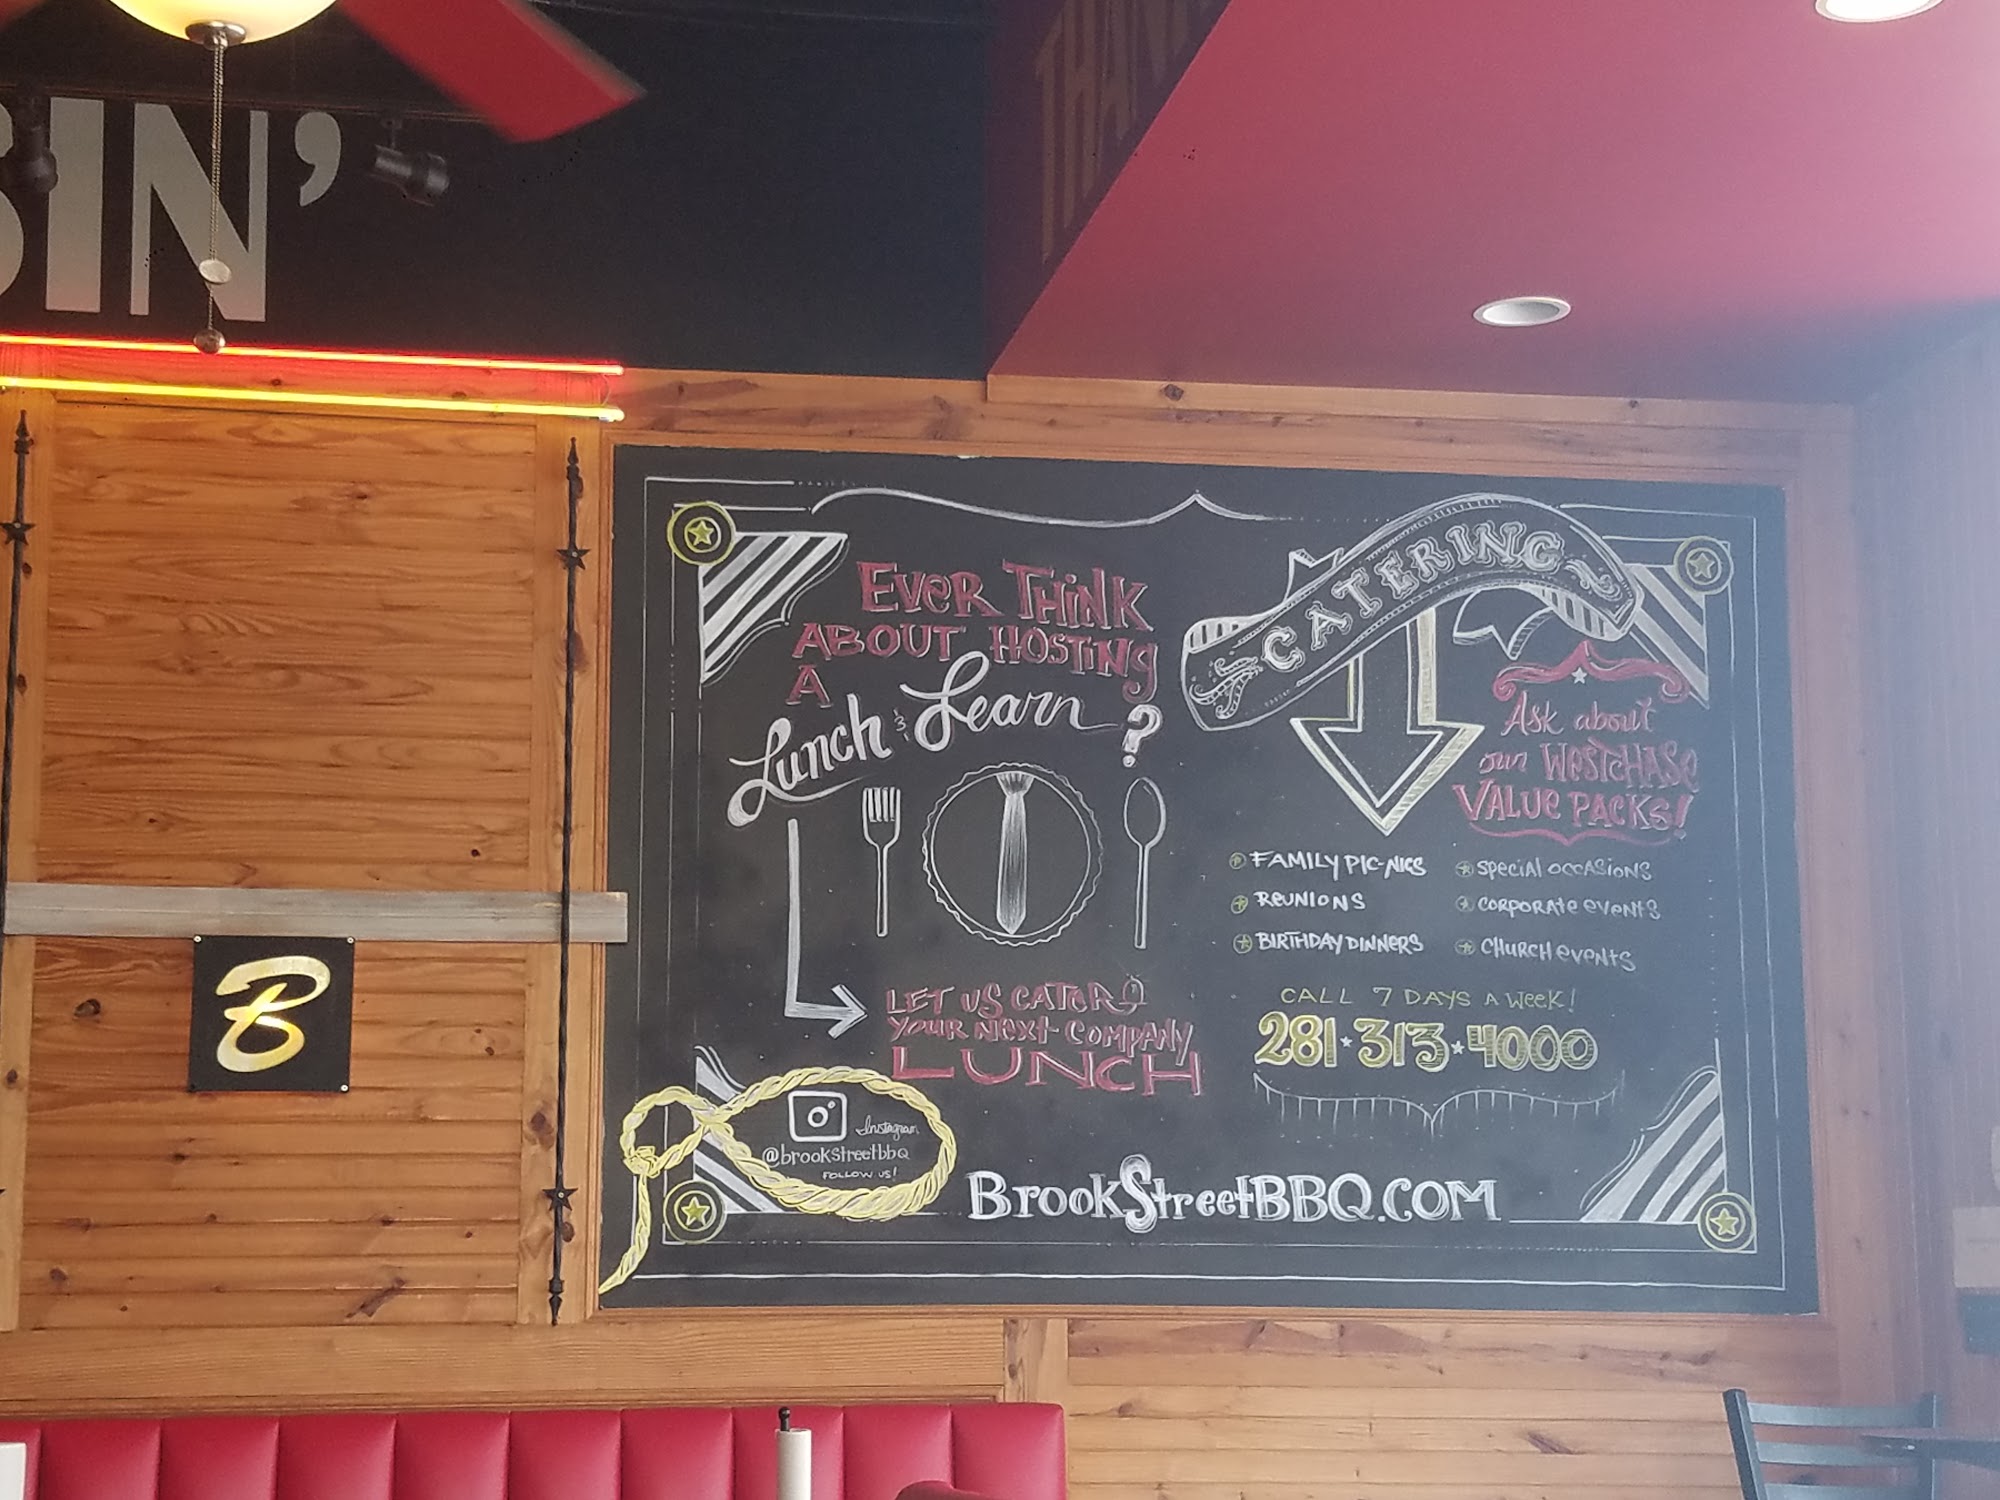 SIN'
THAN
B
EVER THINK
ABOUT HOSTING
A
Lunch & Learn?
LET US CATER
YOUR NEXT COMPANY
LUNCH
Instagram
@brookstreetbbq
FOLLOW US!
CATERING
Ask about
our WESTCHASE
VALUE PACKS!
FAMILY PIC-NICS
REUNIONS
BIRTHDAY DINNERS
SPECIAL OCCASIONS
CORPORATE EVENTS
CHURCH EVENTS
CALL 7 DAYS A WEEK!
281·313·4000
BROOKSTREETBBQ.COM